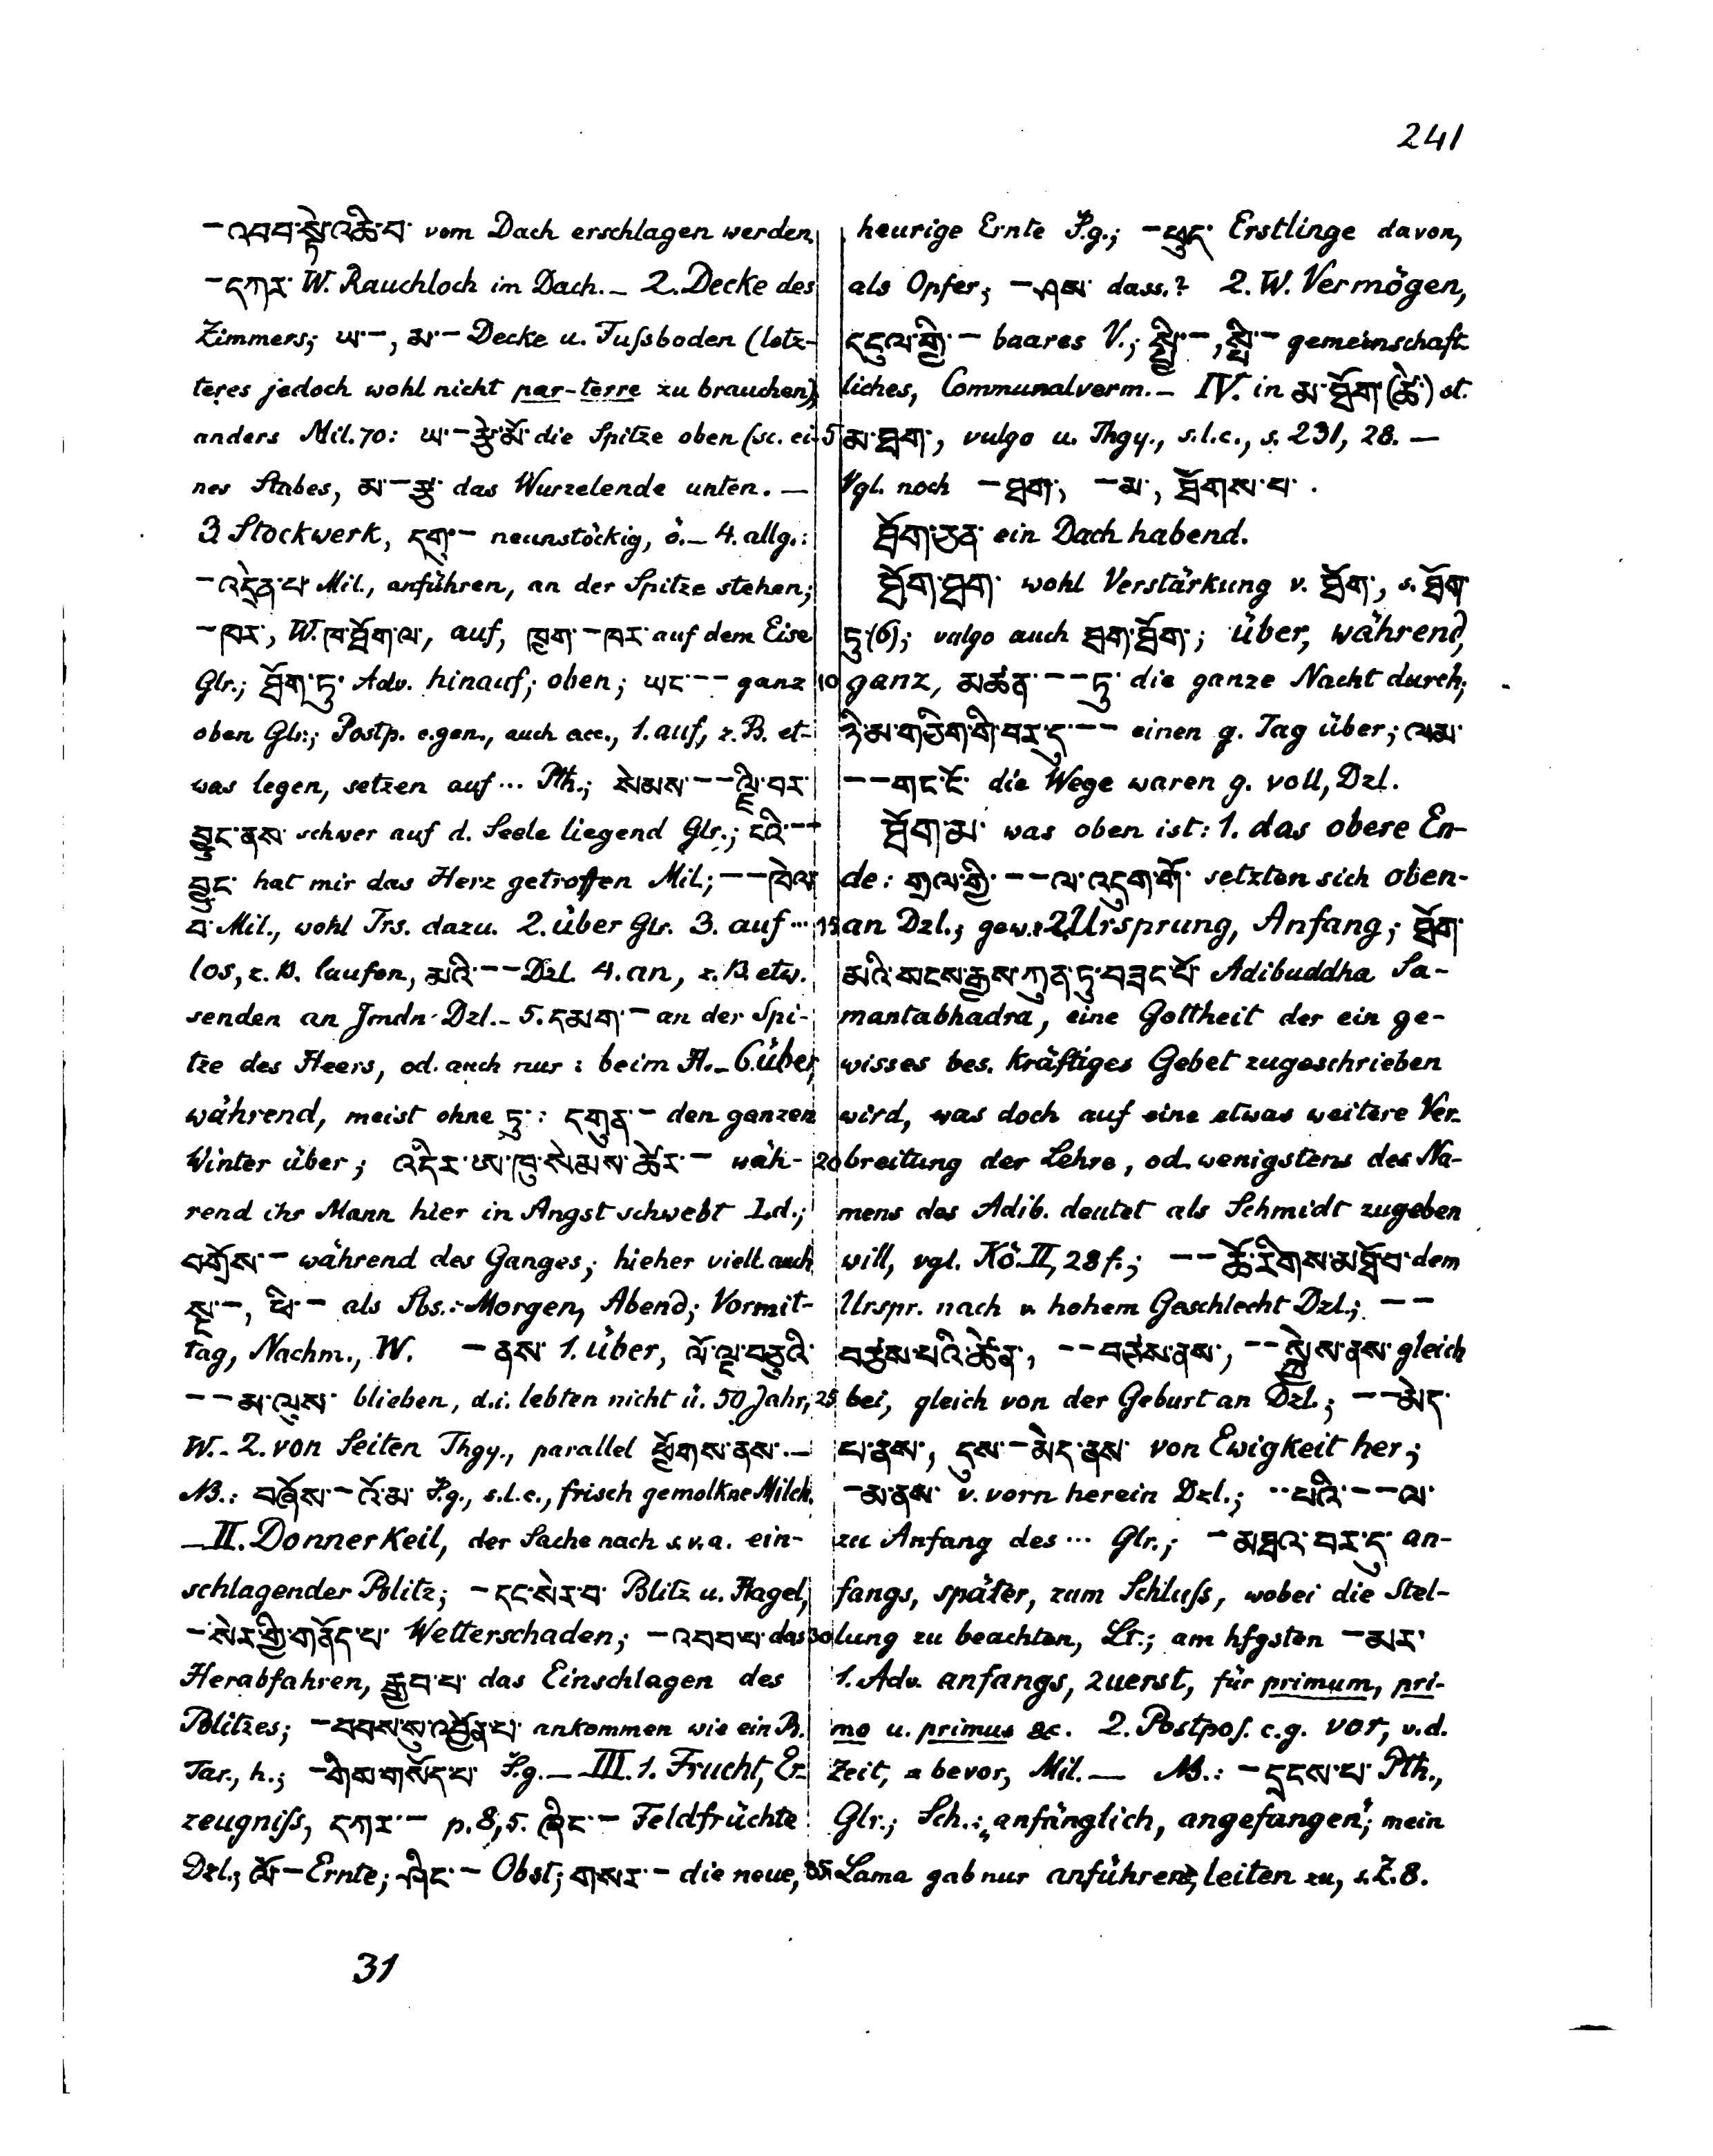 241
–འབབ་སྟེ་འཆི་བ་ vom Dach erschlagen werden
–དཀར་ W. Rauchloch im Dach. – 2. Decke des
Zimmers; ཡ་–, མ་– Decke u. Fußboden (letz-
teres jedoch wohl nicht par-terre zu brauchen),
anders Mil. 70: ཡ་–རྩེ་མོ་ die Spitze oben (sc. ei-
nes Stabes, མ་–རྩ་ das Wurzelende unten. –
3 Stockwerk, དགུ་– neunstöckig, ö. – 4. allg.:
–འདྲེན་པ་ Mil., anführen, an der Spitze stehen;
–ཁར་, W. ཁ་ཐོག་ལ་, auf, ཁྱག་–ཁར་ auf dem Eise
Glr.; ཐོག་ཏུ་ Adv. hinauf; oben; ཡང་–– ganz
oben Glr.; Postp. c. gen., auch acc., 1. auf, z. B. et-
was legen, setzen auf ... Pth.; སེམས་––ལྗི་བར་
བྱུང་ནས་ schwer auf d. Seele liegend Glr.; ངའི་––
བྱུང་ hat mir das Herz getroffen Mil; ––ཁེལ་
བ་ Mil., wohl Trs. dazu. 2. über Glr. 3. auf ...
los, z. B. laufen, མའི་–– Dzl. 4. an, z. B. etw.
senden an Jmdn Dzl. – 5. དམག་– an der Spi-
tze des Heers, od. auch nur: beim H. – 6. über,
während, meist ohne ཏུ་: དགུན་– den ganzen
Winter über; འདིར་ཨ་ཁུ་སེམས་ཚེར་– wäh-
rend ihr Mann hier in Angst schwebt Ld.;
བགྲོས་– während des Ganges; hieher vielt. auch
སྔ་–, ཕྱི་– als Sbs.: Morgen, Abend; Vormit-
tag, Nachm., W. –ནས་ 1. über, ལོ་ལྔ་བཅུའི་
––མ་ལུས་ blieben, d. i. lebten nicht ü. 50 Jahr,
W. – 2. von Seiten Thgy., parallel ཕྱོགས་ནས་. –
NB.: བཞོས་–འོ་མ་ S.g., s. l. c., frisch gemolkne Milch.
– II. Donnerkeil, der Sache nach s. v. a. ein-
schlagender Blitz; –དང་སེར་བ་ Blitz u. Hagel,
–སེར་གྱི་གནོད་པ་ Wetterschaden; –འབབ་པ་ das
Herabfahren, རྒྱབ་པ་ das Einschlagen des
Blitzes; –བབས་སུ་འབྱོན་པ་ ankommen wie ein B.
Tar., h.; –གིས་གསོད་པ་ S.g. – III. 1. Frucht, Er-
zeugniß, དཀར་– p. 8, 5. ཞིང་– Feldfrüchte
Dzl.; ལོ་– Ernte; ཤིང་– Obst; གསར་– die neue,
heurige Ernte S.g.; –ཕུད་ Erstlinge davon,
als Opfer; –ཤས་ dass.? 2. W. Vermögen,
དངུལ་གྱི་– baares V.; སྤྱི་–, སྤྱི་– gemeinschaft-
liches, Communalverm. – IV. in མ་ཐོག་(ཚེ་) st.
5 མ་ཐག་, vulgo u. Thgy., s. l. c., s. 231, 28. –
Vgl. noch –ཐག་, –མ་, ཐོགས་པ་.
ཐོག་ཅན་ ein Dach habend.
ཐོག་ཐག་ wohl Verstärkung v. ཐོག་, s. ཐོག་
ཏུ་ (6); vulgo auch ཐག་ཐོག་; über, während,
10 ganz, མཚན་––ཏུ་ die ganze Nacht durch;
ཉི་མ་གཅིག་གི་བར་དུ་–– einen g. Tag über; ལམ་
––གང་ངོ་ die Wege waren g. voll, Dzl.
ཐོག་མ་ was oben ist: 1. das obere En-
de: གྲལ་གྱི་––ལ་འདུག་གོ་ setzten sich oben-
15 an Dzl.; gew.: 2. Ursprung, Anfang; ཐོག་
མའི་སངས་རྒྱས་ཀུན་ཏུ་བཟང་པོ་ Adibuddha Sa-
mantabhadra, eine Gottheit der ein ge-
wisses bes. kräftiges Gebet zugeschrieben
wird, was doch auf eine etwas weitere Ver-
20 breitung der Lehre, od. wenigstens des Na-
mens des Adib. deutet als Schmidt zugeben
will, vgl. Kö. II, 28 f.; ––ཆོ་རིགས་མཐོ་བ་ dem
Urspr. nach v. hohem Geschlecht Dzl.; ––
བཙས་པའི་ཚེ་ན་, ––བཙས་ནས་, ––སྐྱེས་ནས་ gleich
25 bei, gleich von der Geburt an Dzl.; ––མེད་
པ་ནས་, དུས་–མེད་ནས་ von Ewigkeit her;
–མ་ནས་ v. vorn herein Dzl.; ··པའི་––ལ་
zu Anfang des ... Glr.; –མཐའ་བར་དུ་ an-
fangs, später, zum Schluß, wobei die Stel-
30 lung zu beachten, Lt.; am hfgsten –མར་
1. Adv. anfangs, zuerst, für primum, pri-
mo u. primus &c. 2. Postpos. c. g. vor, v. d.
Zeit, bevor, Mil. – NB.: –དྲངས་པ་ Pth.,
Glr.; Sch.: „anfänglich, angefangen"; mein
35 Lama gab nur anführen, leiten zu, s. Z. 8.
31